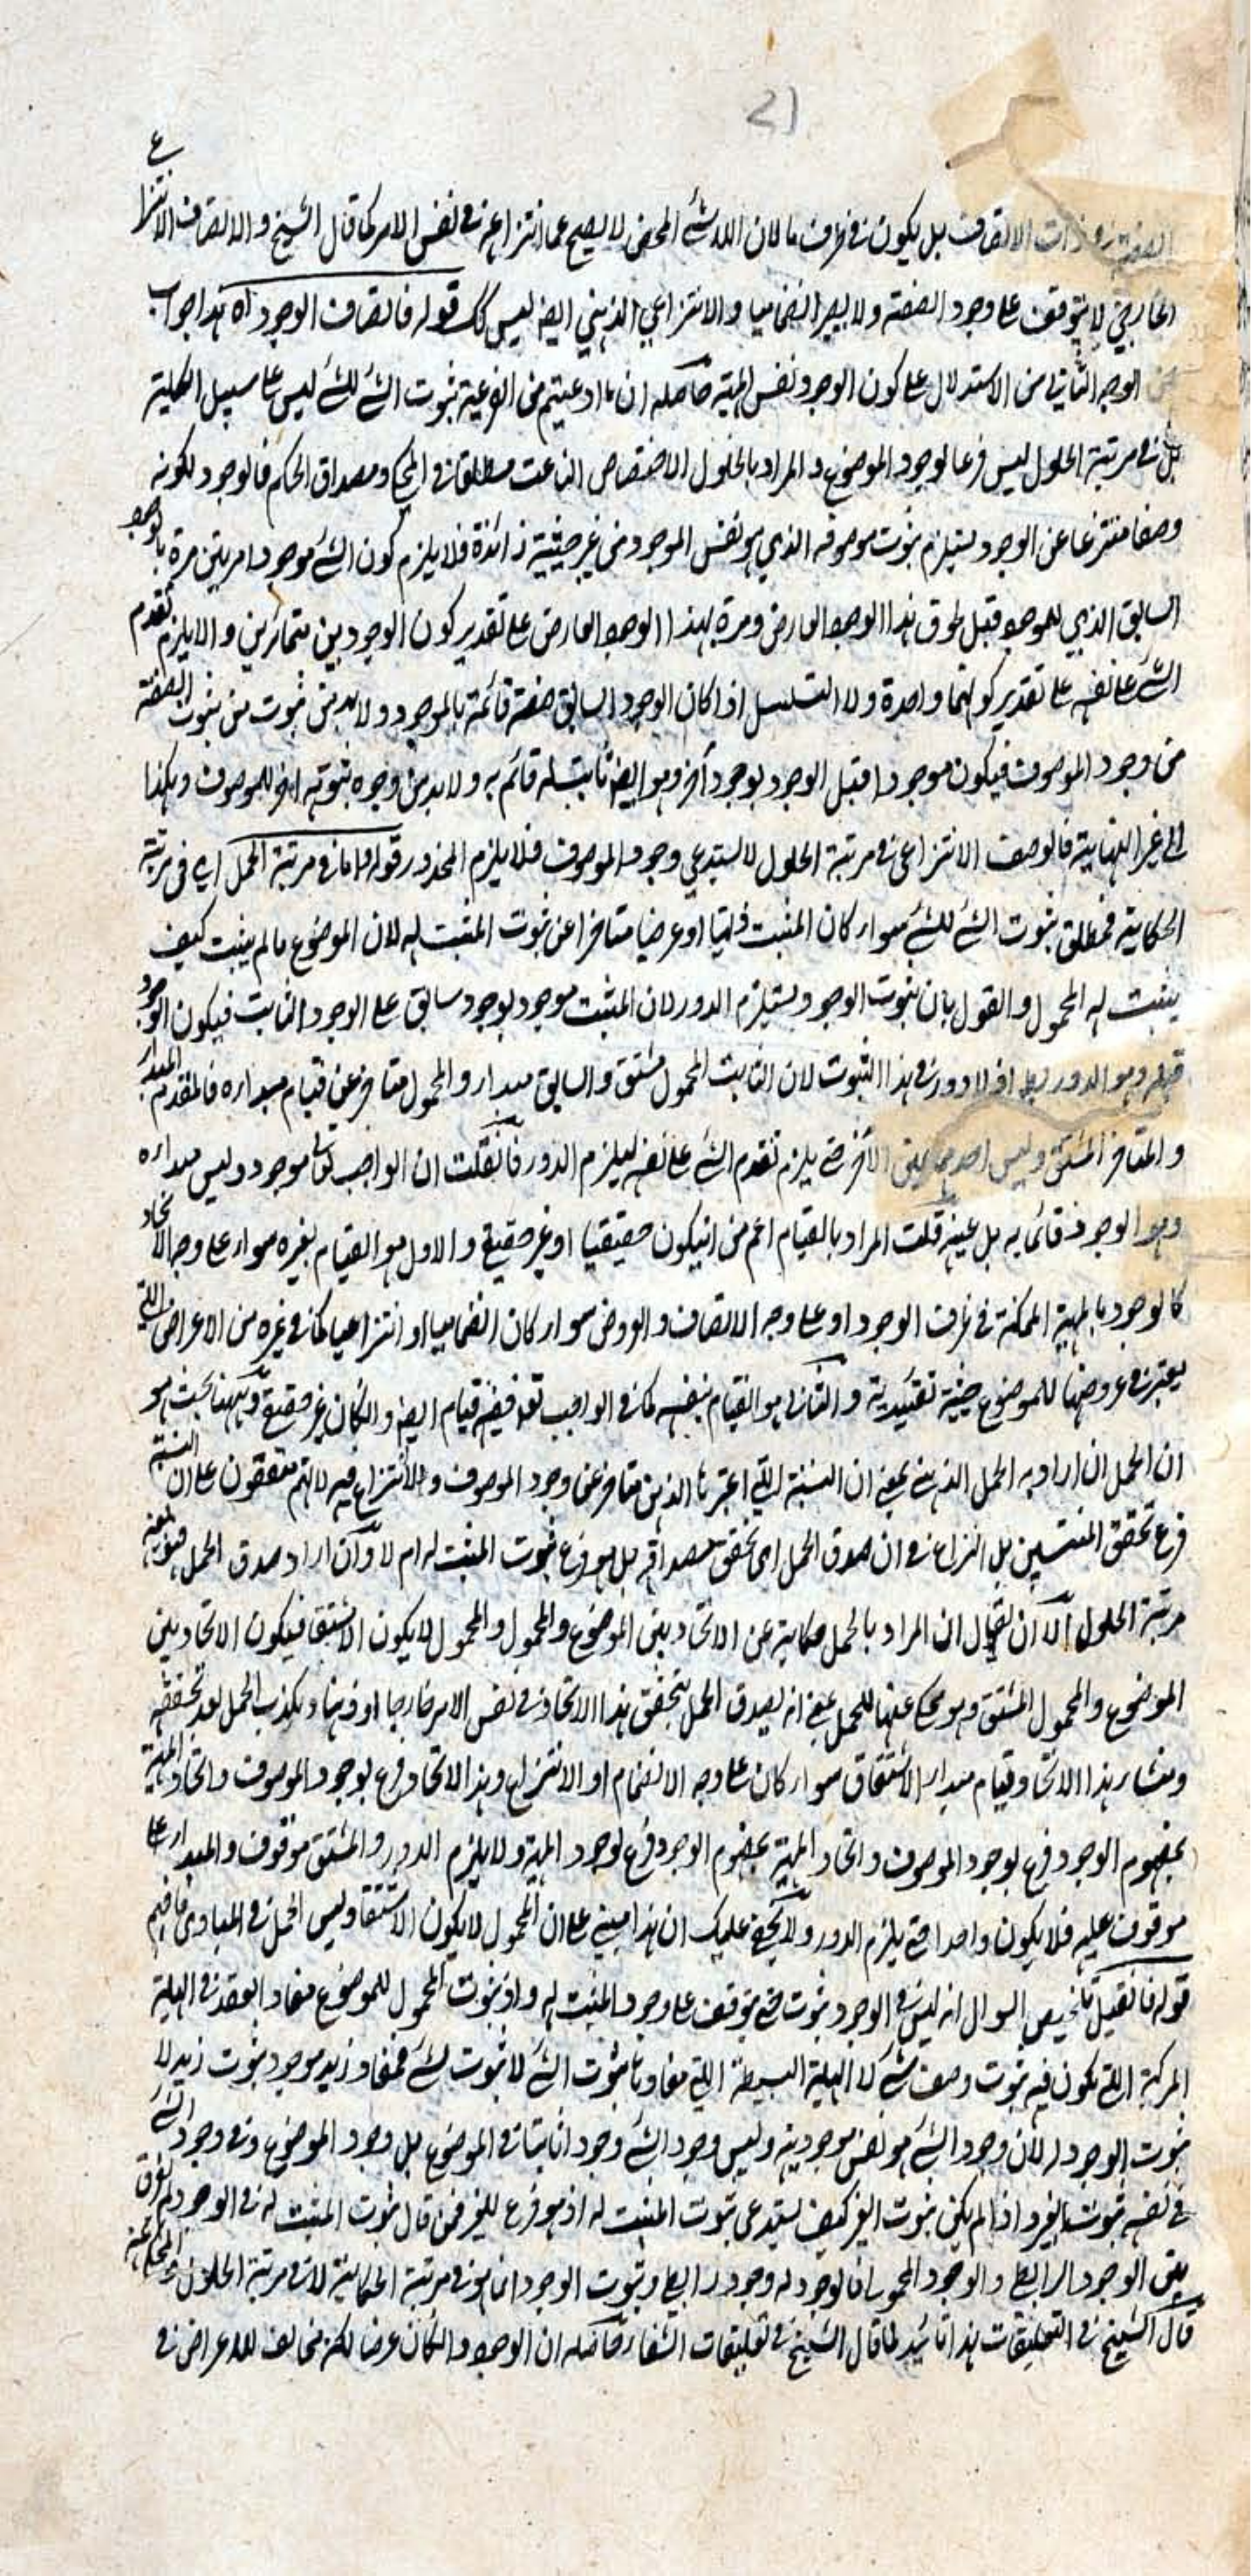 21
الاتصاف بل يكون في ظرف ما لان اللاشئ المحض لا يصح عما انتزاعه في نفس الامر كما قال الشيخ والاتصاف الانتزاعي
الخارجي لا يتوقف على وجود الصفة والانتزاعي الذهني ايضا ليس كك قوله فاتصاف الوجود آه هذا جواب
عن الوجه الثاني من الاستدلال على كون الوجود نفس المهية حاصله ان ما ادعيتم من الفرعية ثبوت الشئ للشئ ليس على سبيل الكلية
بل في مرتبة الحلول ليس فرعا لوجود الموضوع والمراد بالحلول الاختصاص الناعت مطلقا في المحكي ومصداق الحكم فالوجود لكونه
وصفا منتزعا عن الوجود يستلزم ثبوت موصوفه الذي هو نفس الموجود من غير حيثية زائدة فلا يلزم كون الشئ موجودا مرتين مرة بالوجود
السابق الذي للموجود قبل لحوق هذا الوجود العارض ومرة بهذا الوجود العارض على تقدير كون الوجودين متمائزين والا يلزم تقدم
الشئ على نفسه على تقدير كونهما واحدة ولا التسلسل اذا كان الوجود السابق صفة قائمة بالموجود ولا بد من ثبوت الصفة
من وجود الموصوف فيكون موجودا قبل الوجود بوجود آخر وهو ايضا ثابت له قائم به ولا بد من وجوه ثبوته للموصوف وهكذا
الى غير النهاية فالوصف الانتزاعي في مرتبة الحلول لا يستدعي وجود الموصوف فلا يلزم المحذور قوله واما في مرتبة الحمل اي في مرتبة
الحكاية فمطلق ثبوت الشئ للشئ سواء كان المثبت ذاتيا او عرضيا متاخرا عن ثبوت المثبت له لان الموضوع ما لم يثبت كيف
يثبت له المحمول والقول بان ثبوت الوجود يستلزم الدور لان المثبت موجود بوجود سابق على الوجود الثابت فيكون الوجود
قبله وهو الدور اذ لا دور في هذا الثبوت لان الثابت المحمول مشتق والسابق مبدأ والمحمول متاخر عن قيام مبدأه فالمتقدم المبدأ
والمتاخر المشتق وليس احدهما عين الآخر حتى يلزم تقدم الشئ على نفسه ليلزم الدور فان قلت ان الواجب تعالى موجود وليس مبدأه
وهو الوجود قائما به بل عينه قلت المراد بالقيام اعم من ان يكون حقيقيا او غير حقيقي والاول هو القيام بغيره سواء على وجه الاتحاد
كالوجود بالمهية الممكنة في ظرف الوجود او على وجه الاتصاف والعروض سواء كان انضماميا او انتزاعيا كما في غيره من الاعراض اللتي
يعتبر في عروضها للموضوع حيثية تقييدية والثاني هو القيام بنفسه كما في الواجب تعالى ففيه قيام ايضا وان كان غير حقيقي وههنا بحث هو
ان الحمل ان اراد به الحمل الذهني بمعنى ان النسبة اللتي اعتبرها الذهن متاخر عن وجود الموصوف ولا نزاع فيه لانهم متفقون على ان النسبة
فرع تحقق المنتسبين بل النزاع في ان صدق الحمل اي تحقق مصداقه بل هو فرع ثبوت المثبت له ام لا وان اراد صدق الحمل
مرتبة الحلول الا ان يقال ان المراد بالحمل حكاية عن الاتحاد بين الموضوع والمحمول والمحمول لا يكون الا مشتقا فيكون الاتحاد بين
الموضوع والمحمول المشتق وهو محكي عنها للحمل بمعنى انه يصدق الحمل بتحقق هذا الاتحاد في نفس الامر خارجا او ذهنا ويكذب الحمل بعدم تحققه
ومنشأ هذا الاتحاد قيام مبدأ الاشتقاق سواء كان على وجه الانضمام او الانتزاع وهذا الاتحاد فرع لوجود الموصوف واتحاد المهية
بمفهوم الوجود فرع لوجود الموصوف واتحاد المهية بمفهوم الوجود فرع لوجود المهية ولا يلزم الدور والمشتق موقوف والمبدأ
موقوف عليه فلا يكون واحدا حتى يلزم الدور ولا يخفى عليك ان هذا مبني على ان المحمول لا يكون الا مشتقا وليس الحمل في المبادي فافهم
قوله فان قيل تلخيص السوال انه ليس في الوجود ثبوت حتى يتوقف على وجود المثبت له واذ ثبوت المحمول للموضوع مفاد العقد في الهلية
المركبة اللتي تكون فيه ثبوت وصف لشئ لا الهلية البسيطة اللتي مفادها ثبوت الشئ لا ثبوت لشئ فمفاد زيد موجود ثبوت زيد لا
ثبوت الوجود له لان وجود الشئ هو نفس موجوديته وليس وجود الشئ وجودا ثابتا في الموضوع بل وجود الموضوع وفي وجود الشئ
في نفسه ثبوت الغير واذا لم يكن ثبوت الغير كيف يستدعي ثبوت المثبت له اذ هو فرع للغير فمن قال ثبوت المثبت له في الوجود لم يفرق
بين الوجود الرابطي والوجود المحمولي فالوجود له وجود رابطي وثبوت الوجود انما هو في مرتبة الحكاية لا في مرتبة الحلول والمحكي عنه
قال الشيخ في التعليقات هذا تائيد لما قال الشيخ في تعليقات الشفاء حاصله ان الوجود وان كان عرضا لكنه مخالف للاعراض في